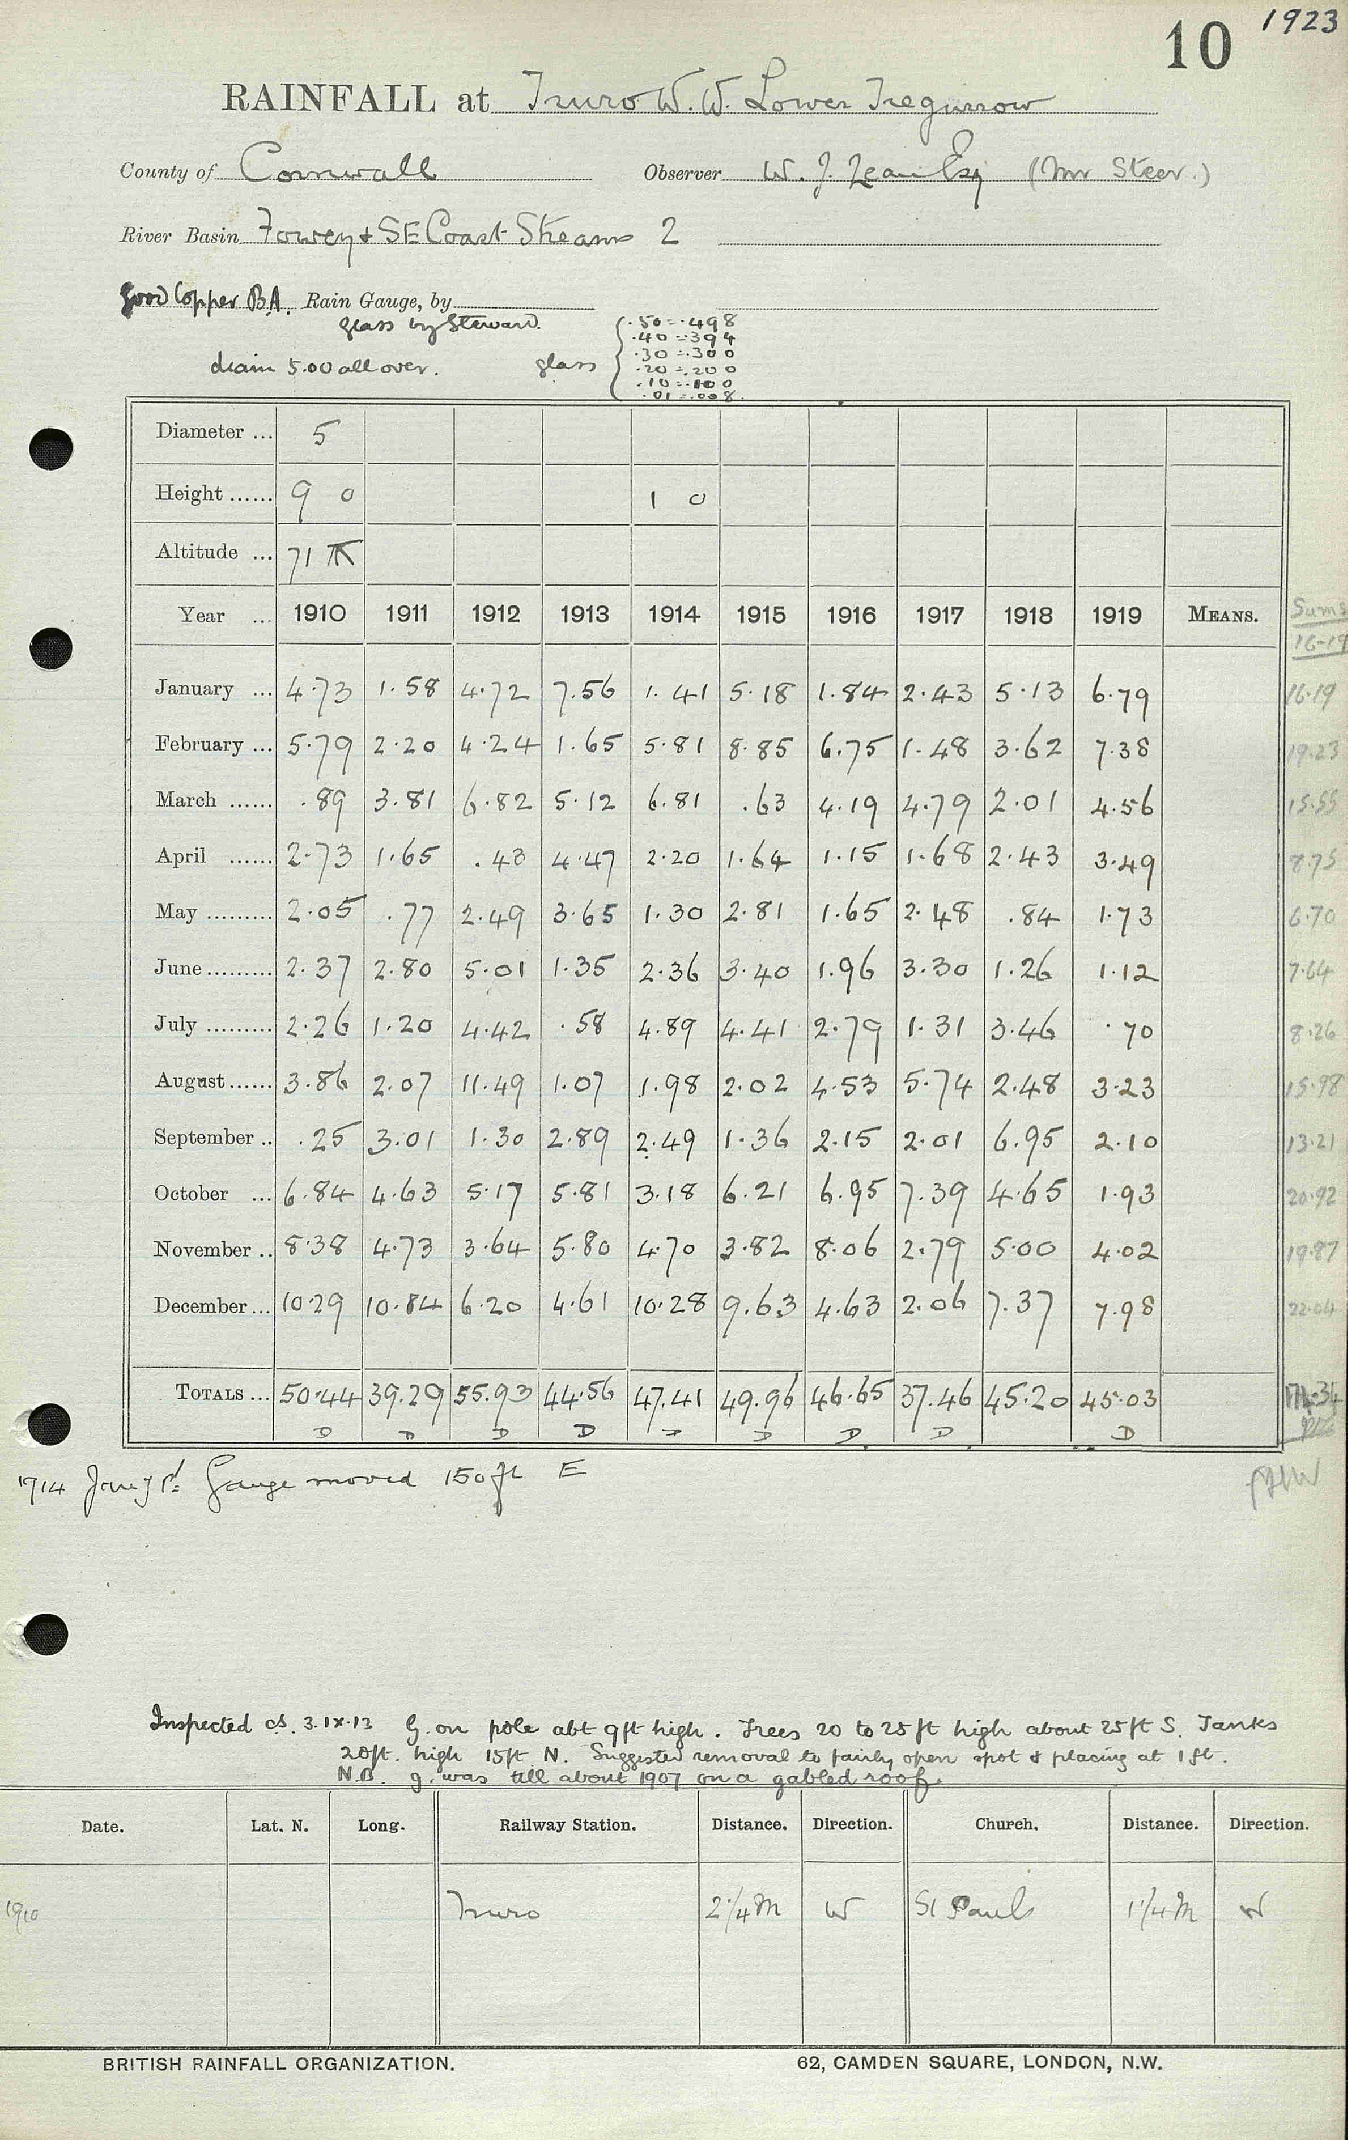 10 1923
RAINFALL at Truro W.W. Lower Tregurrow
County of Cornwall Observer W. J. Lean Esq (Mr Steer.)
River Basin Fowey + SE Coast Streams 2
Good Copper B.A. Rain Gauge, by
glass by Steward. .50=.498
.40=.394
.30=.300
drain 5.00 all over. glass .20=.200
.10=.100
.01=.008.
Diameter ... 5
Height ...... 9 0 1 0
Altitude ... 71
Year ... 1910 1911 1912 1913 1914 1915 1916 1917 1918 1919 MEANS. Sums
16-19
January ... 4.73 1.58 4.72 7.56 1.41 5.18 1.84 2.43 5.13 6.79 16.19
February ... 5.79 2.20 4.24 1.65 5.81 8.85 6.75 1.48 3.62 7.38 19.23
March ...... .89 3.81 6.82 5.12 6.81 .63 4.19 4.79 2.01 4.56 15.55
April ...... 2.73 1.65 .43 4.47 2.20 1.64 1.15 1.68 2.43 3.49 8.75
May ......... 2.05 .77 2.49 3.65 1.30 2.81 1.65 2.48 .84 1.73 6.70
June ......... 2.37 2.80 5.01 1.35 2.36 3.40 1.96 3.30 1.26 1.12 7.64
July ......... 2.26 1.20 4.42 .58 4.89 4.41 2.79 1.31 3.46 .70 8.26
August ...... 3.86 2.07 11.49 1.07 1.98 2.02 4.53 5.74 2.48 3.23 15.98
September .. .25 3.01 1.30 2.89 2.49 1.36 2.15 2.01 6.95 2.10 13.21
October ... 6.84 4.63 5.17 5.81 3.18 6.21 6.95 7.39 4.65 1.93 20.92
November .. 8.38 4.73 3.64 5.80 4.70 3.82 8.06 2.79 5.00 4.02 19.87
December ... 10.29 10.84 6.20 4.61 10.28 9.63 4.63 2.06 7.37 7.98 22.04
TOTALS ... 50.44 39.29 55.93 44.56 47.41 49.96 46.65 37.46 45.20 45.03 174.34
D D D D D D D D D
1914 Jany 1st. Gauge moved 150 ft E
Inspected 3.IX.13 G. on pole abt 9ft high. Trees 20 to 25ft high about 25ft S. Tanks
20ft. high 15ft N. Suggested removal to fairly open spot & placing at 1 ft.
N.B. g. was till about 1907 on a gabled roof.
Date. Lat. N. Long. Railway Station. Distance. Direction. Church. Distance. Direction.
1910 Truro 2 1/4 M W St Pauls 1 1/4 M W
BRITISH RAINFALL ORGANIZATION. 62, CAMDEN SQUARE, LONDON, N.W.